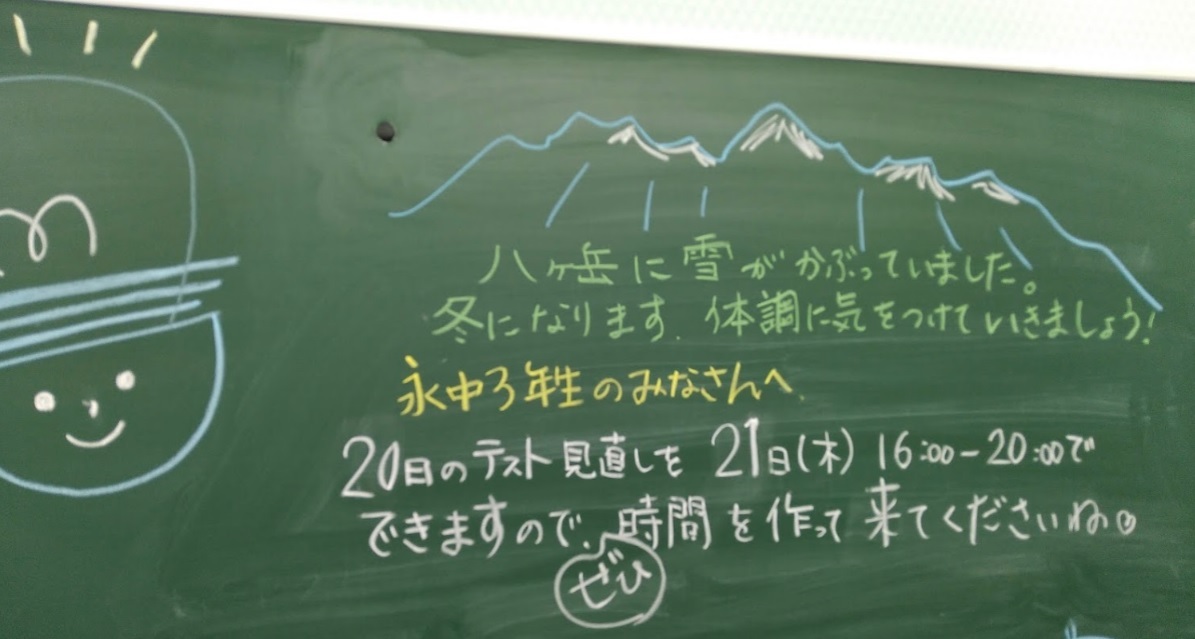 八ヶ岳に雪がかぶっていました。
冬になります。体調に気をつけていきましょう!
永中3年生のみなさんへ
20日のテスト見直しを 21日(木) 16:00-20:00で
できますので、時間を作って来てくださいね。
ぜひ